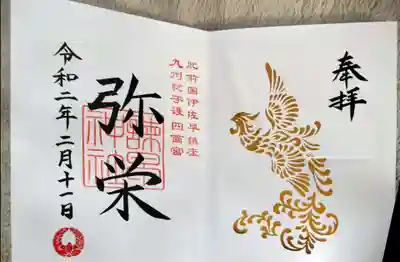 奉拝
肥前国伊佐早鎮座
九州総守護 四面宮
弥栄
諫早
神社
令和二年二月十一日